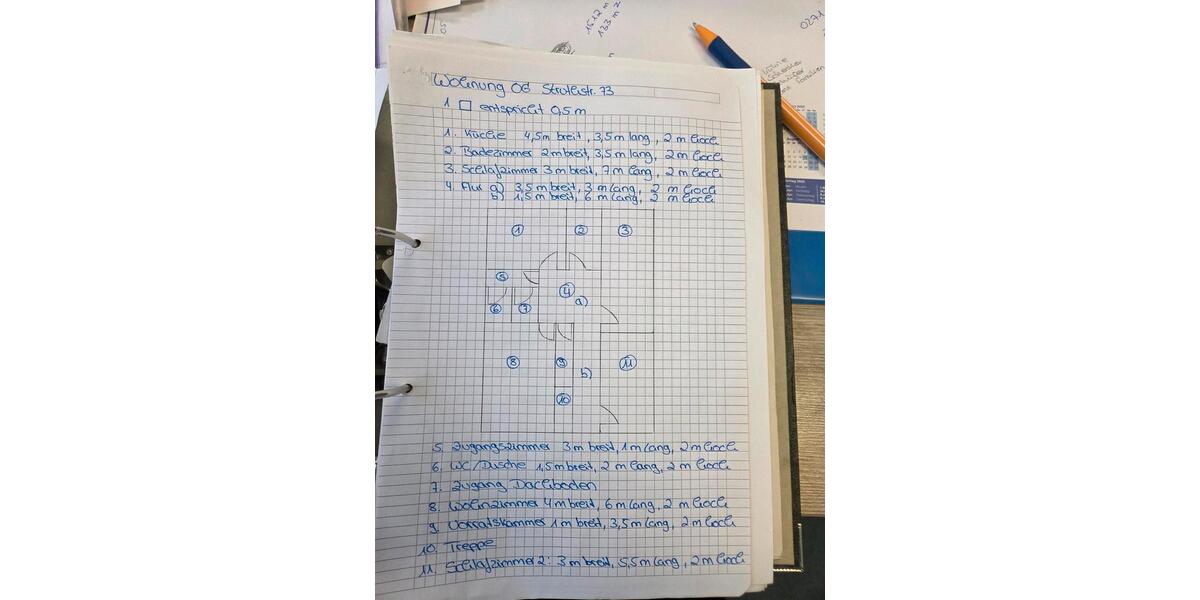 15.12 m
133 m²
0271
05
Wohnung OG Struthstr. 73
1 □ entspricht 0,5 m
1. Küche 4,5m breit, 3,5m lang, 2 m hoch
2. Badezimmer 2m breit, 3,5m lang, 2m hoch
3. Schlafzimmer 3m breit, 7m lang, 2m hoch
4. Flur a) 3,5m breit, 3m lang, 2 m hoch
b) 1,5m breit, 6m lang, 2 m hoch
1 2 3
5
4
a)
6 7
8 9 b) 11
10
5. Zugangszimmer 3m breit, 1m lang, 2m hoch
6. WC/Dusche 1,5m breit, 2m lang, 2m hoch
7. Zugang Dachboden
8. Wohnzimmer 4m breit, 6m lang, 2m hoch
9. Vorratskammer 1m breit, 3,5m lang, 2m hoch
10. Treppe
11. Schlafzimmer 2: 3m breit, 5,5m lang, 2m hoch